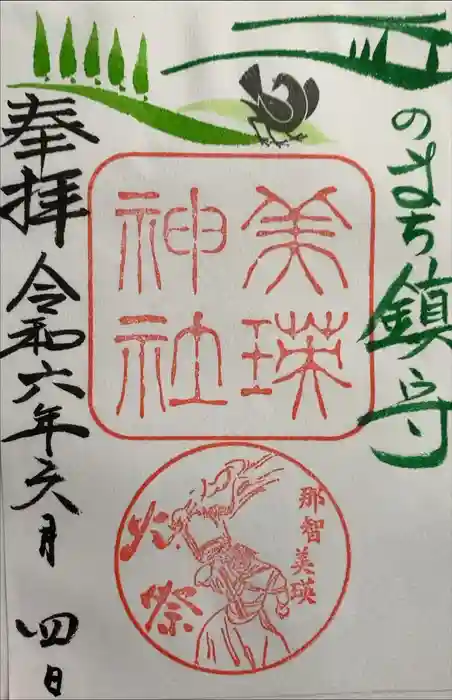 丘のまち鎮守
美瑛
神社
那智美瑛
火祭
奉拝
令和六年六月 四日